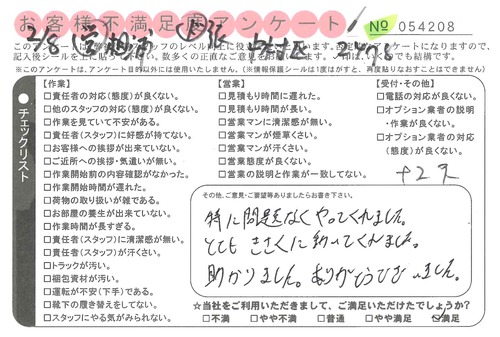 お客様不満足度アンケート
№ 054208
2/8
このアンケートは
記入後シールを上に貼って
※このアンケートは、アンケート目的以外には使用いたしません。(※情報保護シールは1度はがすと、再度貼りなおすことはできません)
チェックリスト
【作業】
□責任者の対応(態度)が良くない。
□他のスタッフの対応(態度)が良くない。
□作業を見ていて不安がある。
□責任者(スタッフ)に好感が持てない。
□お客様への挨拶が出来ていない。
□ご近所への挨拶・気遣いが無い。
□作業開始前の内容確認がなかった。
□作業開始時間が遅れた。
□荷物の取り扱いが雑である。
□お部屋の養生が出来ていない。
□作業時間が長すぎる。
□責任者(スタッフ)に清潔感が無い。
□責任者(スタッフ)が汗くさい。
□トラックが汚い。
□梱包資材が汚い。
□運転が安全(下手)である。
□靴下の履き替えをしてない。
□スタッフにやる気がみられない。
【営業】
□見積もり時間に遅れた。
□見積もり時間が長い。
□営業マンに清潔感が無い。
□営業マンが煙草くさい。
□営業マンが汗くさい。
□営業態度が良くない。
□営業の説明と作業が一致してない。
【受付・その他】
□電話の対応が良くない。
□オプション業者の説明
・作業が良くない。
□オプション業者の対応
(態度)が良くない。
その他、ご意見・ご要望等ありましたらお書き下さい。
特に問題なくやってくれました。
とても きさくに動いてくれました。
助かりました。ありがとうございました。
★当社をご利用いただきまして、ご満足いただけたでしょうか?
□不満 □やや不満 □普通 □やや満足 ☑満足